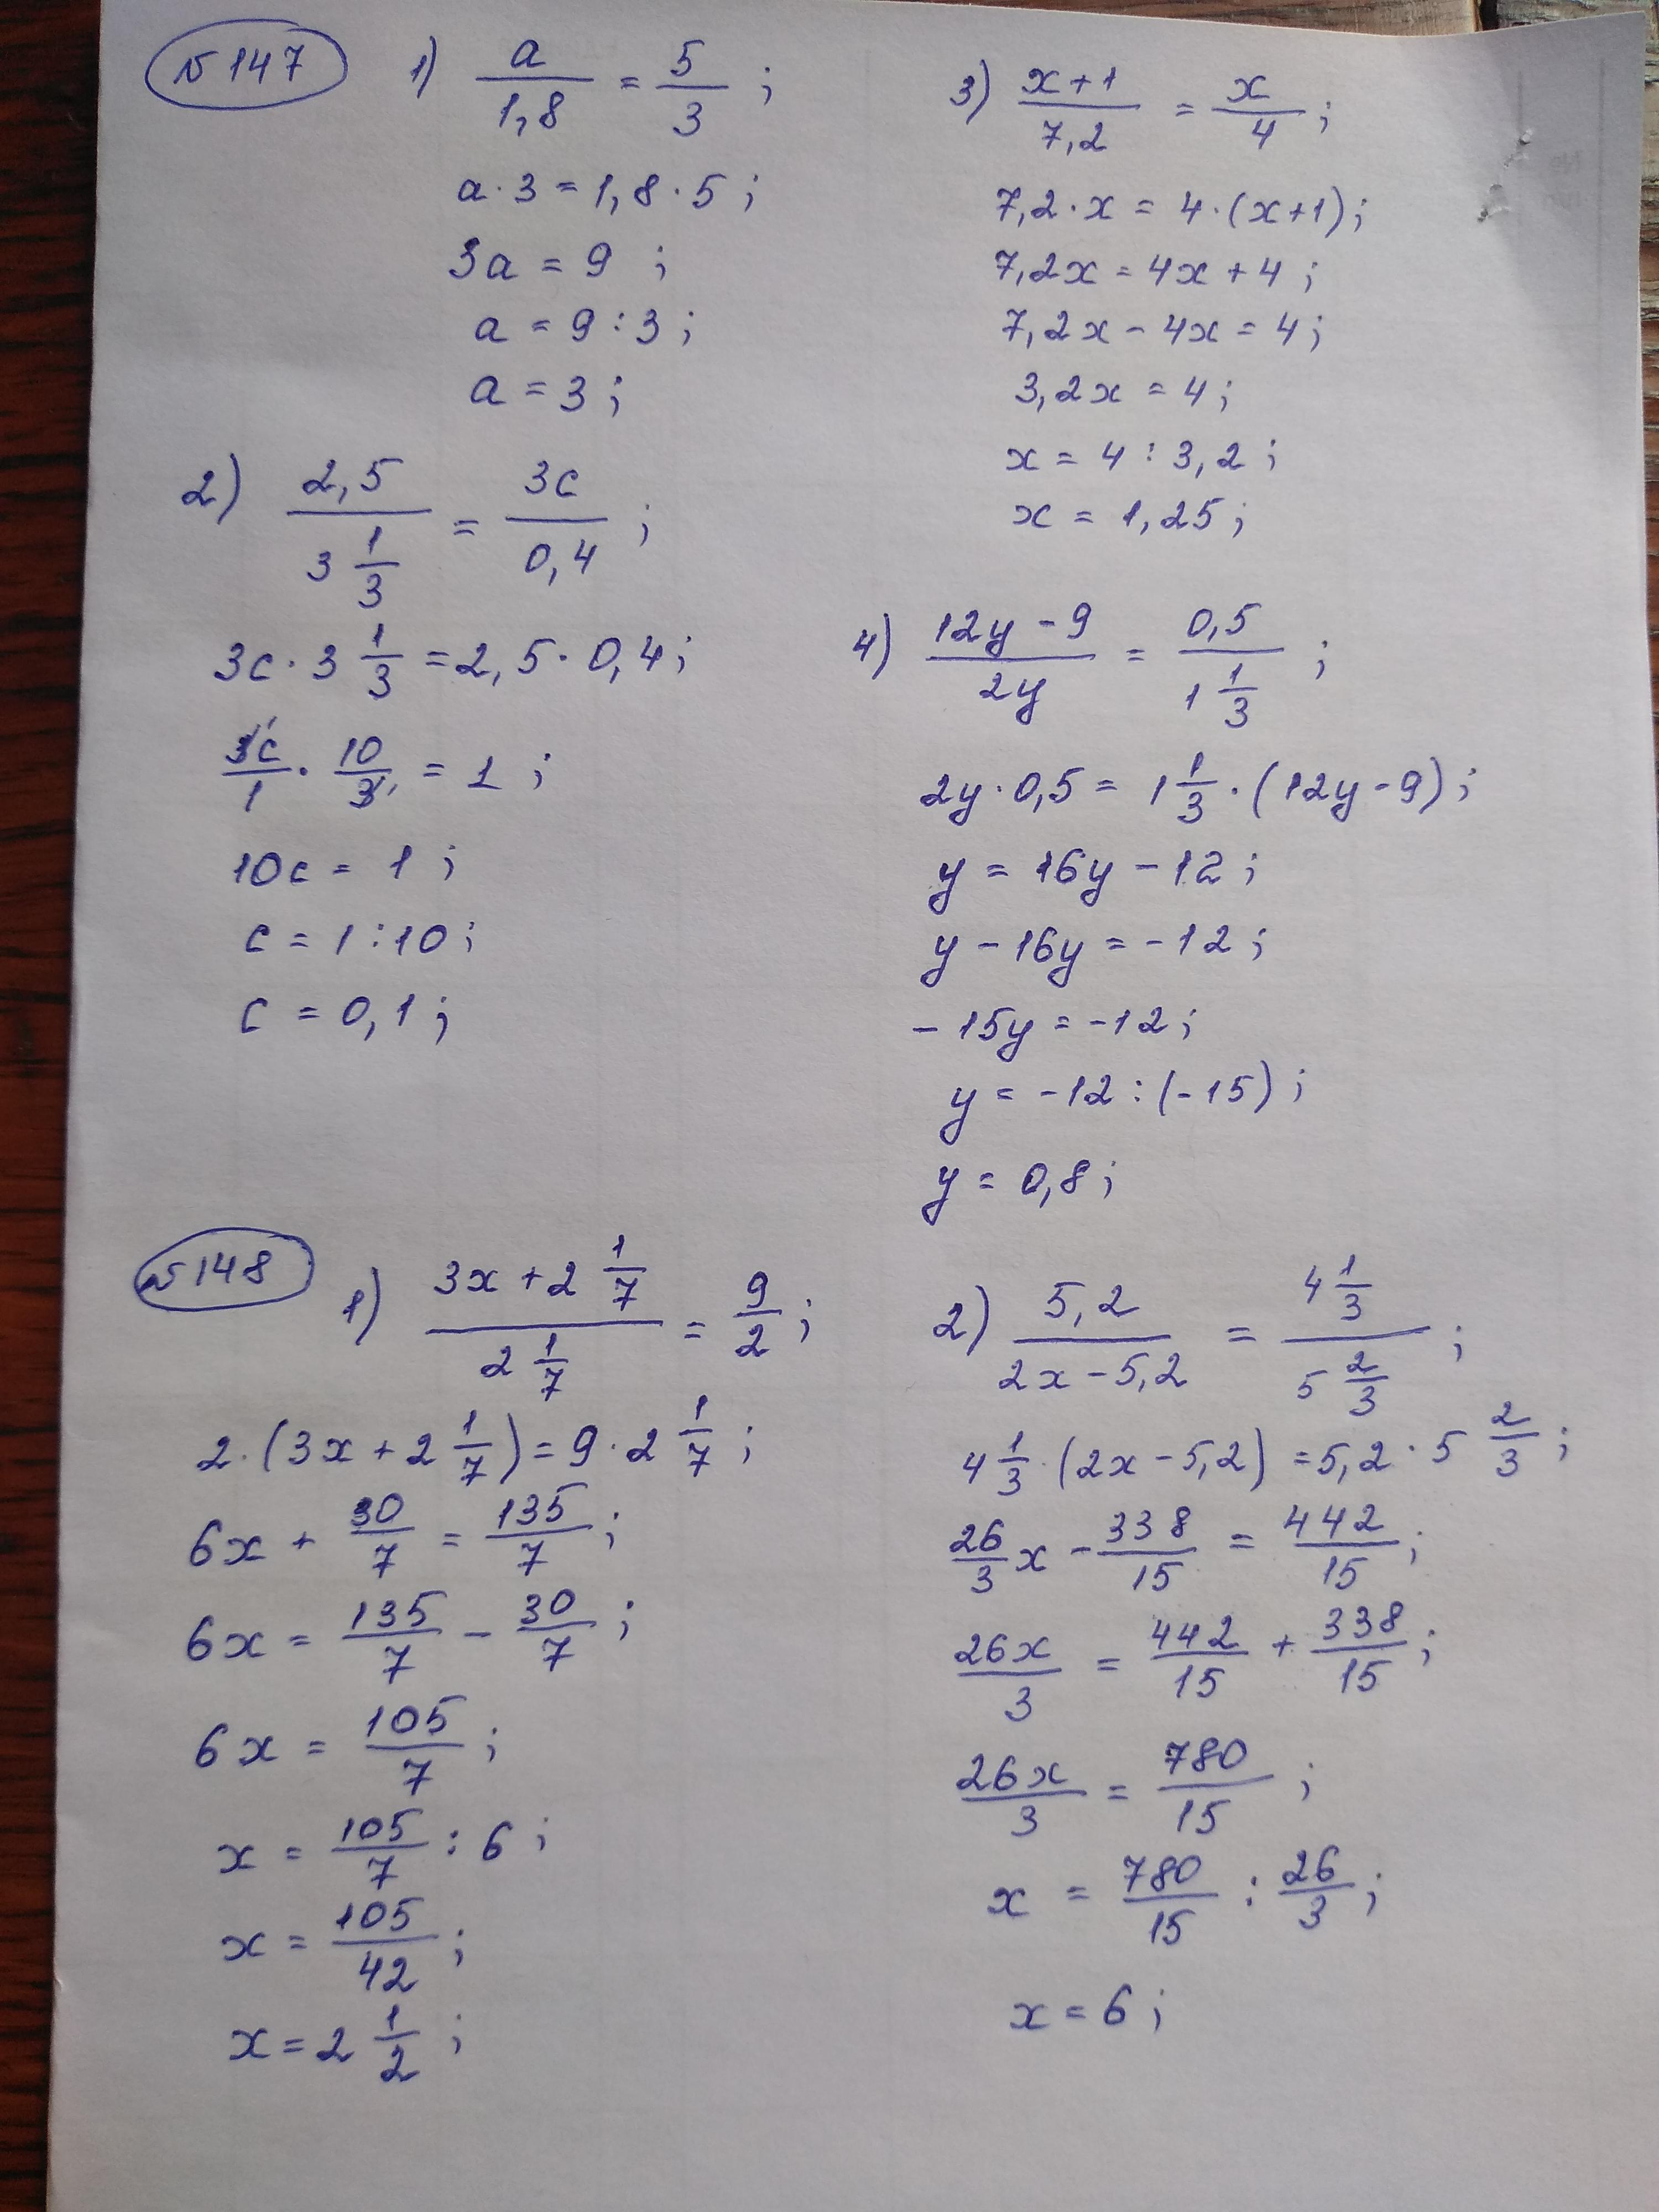 № 147
1) a/1,8 = 5/3 ;
a · 3 = 1,8 · 5 ;
3a = 9 ;
a = 9 : 3 ;
a = 3 ;
2) 2,5/3 1/3 = 3c/0,4 ;
3c · 3 1/3 = 2,5 · 0,4 ;
3c/1 · 10/3 = 1 ;
10c = 1 ;
c = 1 : 10 ;
c = 0,1 ;
3) x+1/7,2 = x/4 ;
7,2 · x = 4 · (x+1) ;
7,2x = 4x + 4 ;
7,2x - 4x = 4 ;
3,2x = 4 ;
x = 4 : 3,2 ;
x = 1,25 ;
4) 12y - 9/2y = 0,5/1 1/3 ;
2y · 0,5 = 1 1/3 · (12y - 9) ;
y = 16y - 12 ;
y - 16y = -12 ;
-15y = -12 ;
y = -12 : (-15) ;
y = 0,8 ;
№ 148
1) 3x + 2 1/7 / 2 1/7 = 9/2 ;
2 · (3x + 2 1/7) = 9 · 2 1/7 ;
6x + 30/7 = 135/7 ;
6x = 135/7 - 30/7 ;
6x = 105/7 ;
x = 105/7 : 6 ;
x = 105/42 ;
x = 2 1/2 ;
2) 5,2/2x - 5,2 = 4 1/3 / 5 2/3 ;
4 1/3 · (2x - 5,2) = 5,2 · 5 2/3 ;
26/3 x - 338/15 = 442/15 ;
26x/3 = 442/15 + 338/15 ;
26x/3 = 780/15 ;
x = 780/15 : 26/3 ;
x = 6 ;